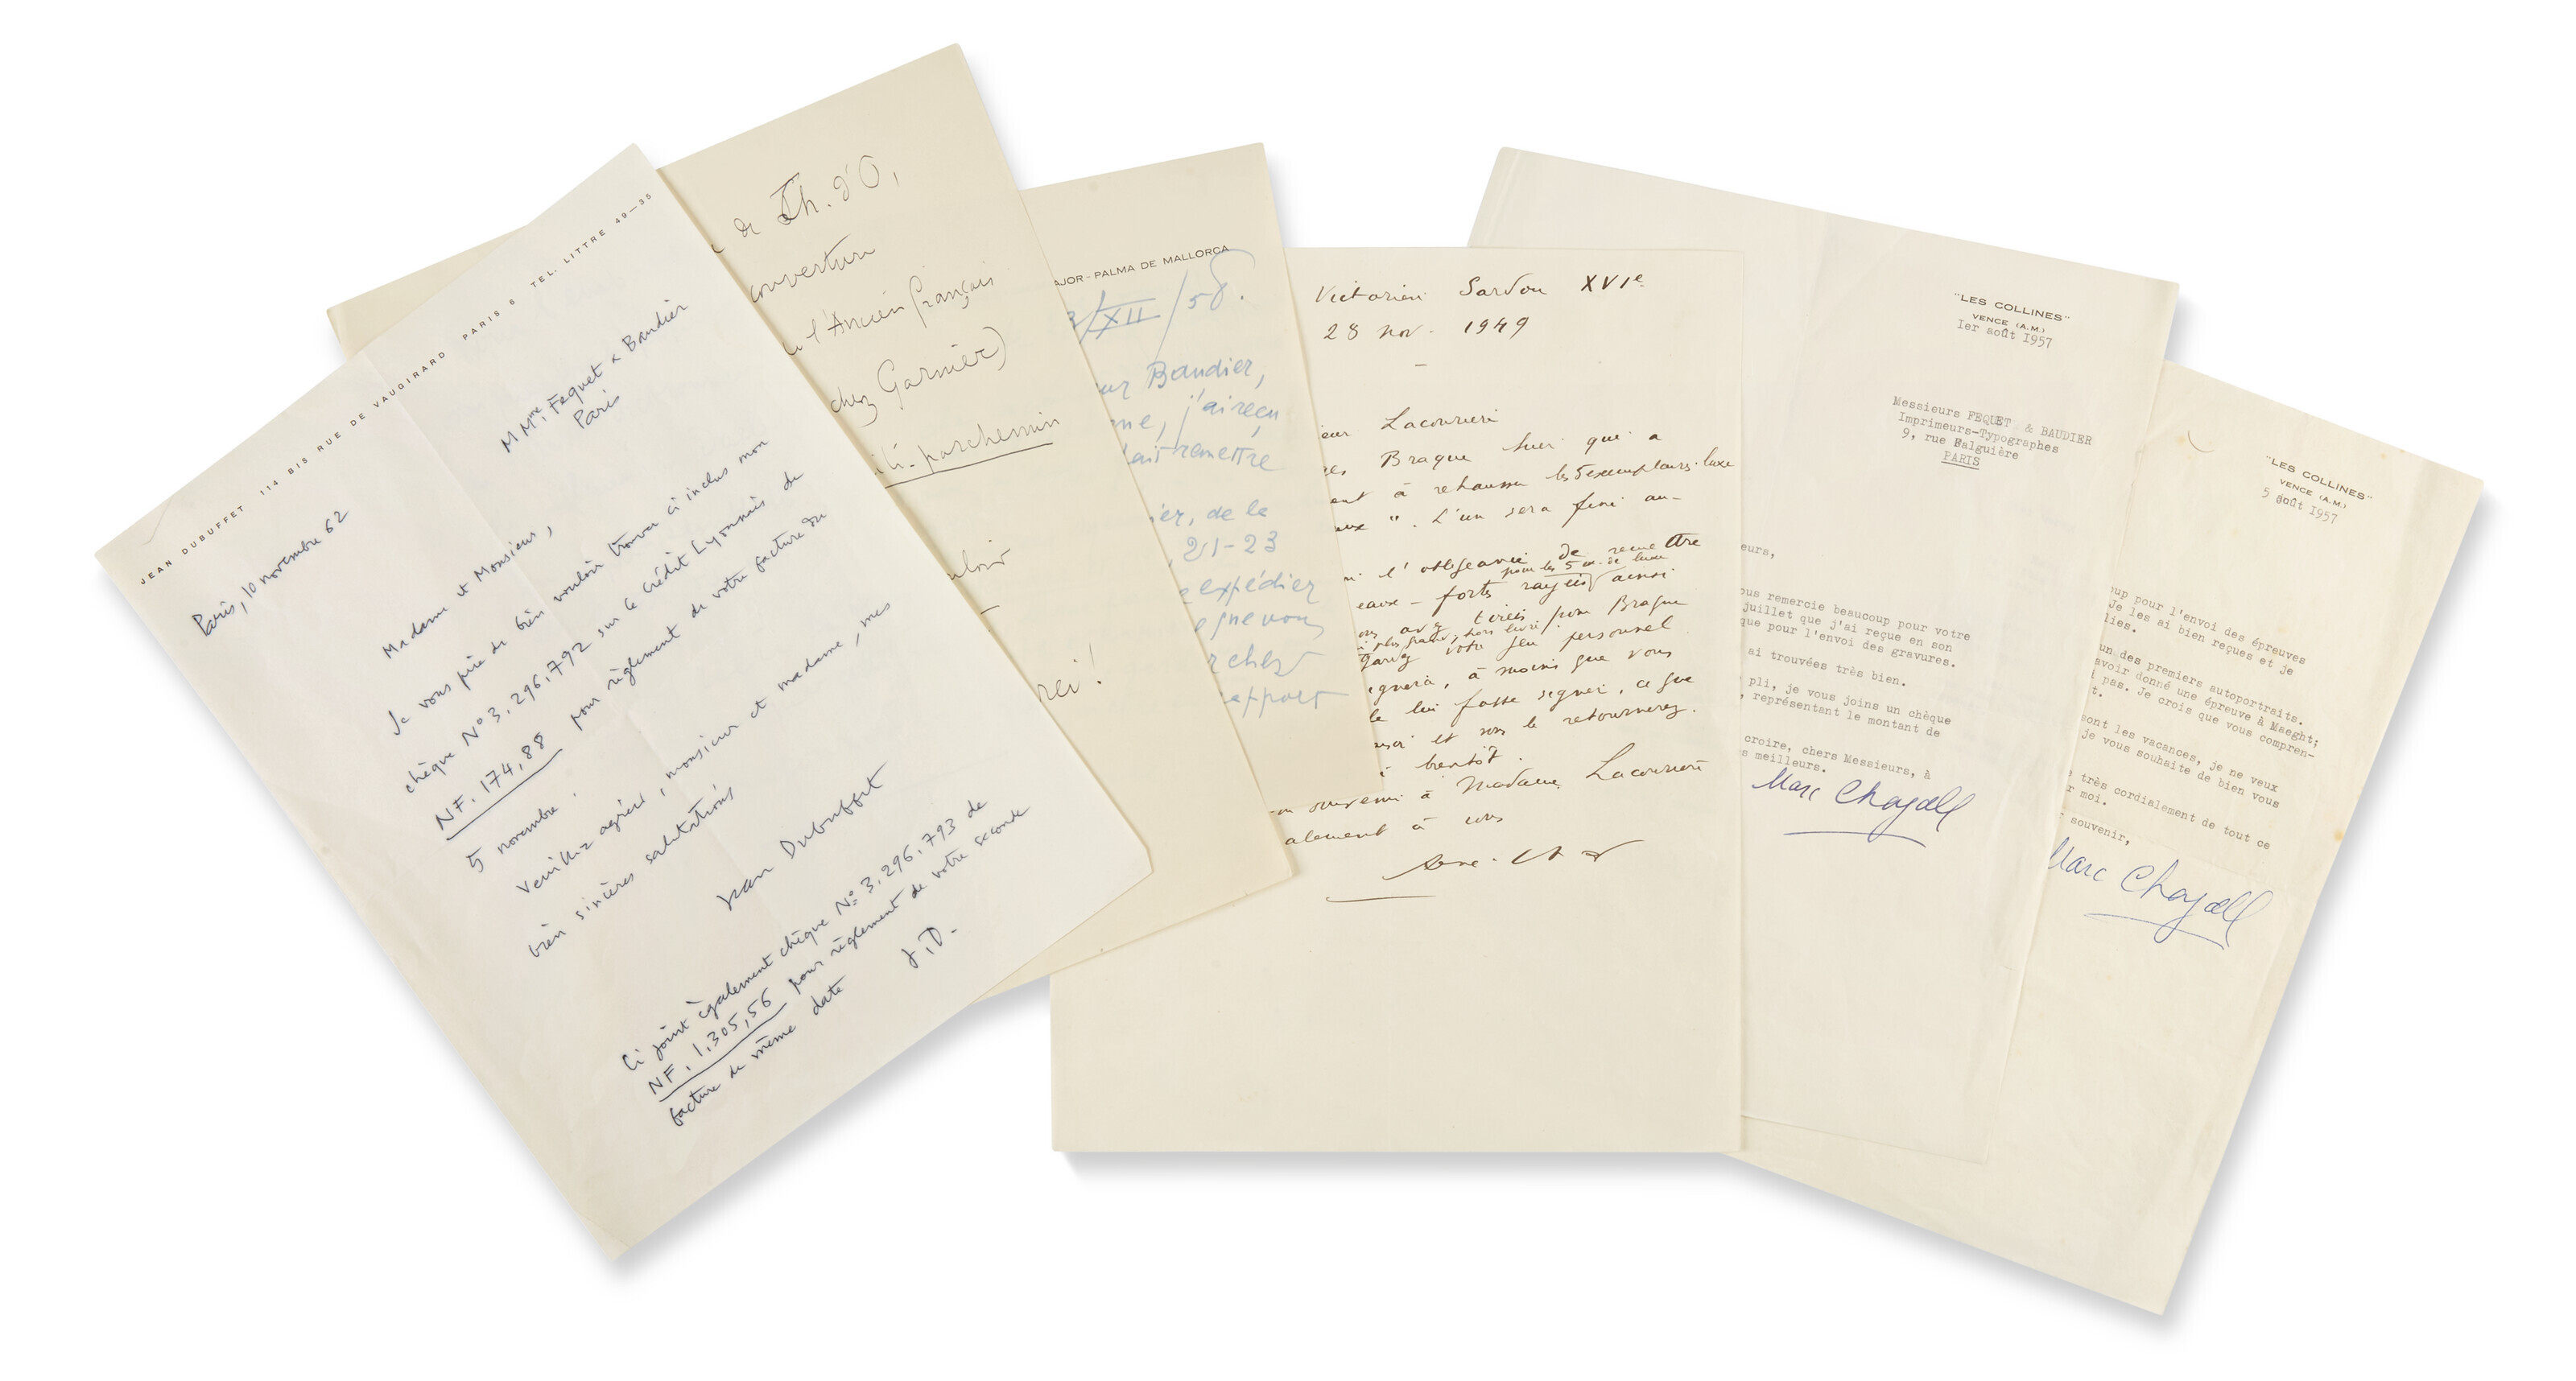 JEAN DUBUFFET 114 BIS RUE DE VAUGIRARD PARIS 6 TEL. LITTRE 49-35
Paris, 10 novembre 62
MMme Fequet & Baudier
Paris
Madame et Monsieur,
Je vous prie de bien vouloir trouver ci inclus mon
chèque N° 3.296.792 sur le Crédit Lyonnais de
NF. 174,88 pour règlement de votre facture du
5 novembre.
Veuillez agréer, monsieur et madame, mes
bien sincères salutations
Jean Dubuffet
Ci joint également chèque N° 3.296.793 de
NF. 1.305,56 pour règlement de votre seconde
facture de même date
J.D.
de Th. d'O,
couverture
l'Ancien français
chez Garnier)
parchemin
JOR - PALMA DE MALLORCA
/XII/58.
ur Baudier,
ne, j'ai reçu
lait remettre
ier, de la
21-23
expédier
que vous
rchez
rapport
Victorien Sardou XVIe
28 nov. 1949
ieur Lacourière
es Braque hier qui a
ent à rehausser les 5 exemplaires. luxe
aux". L'un sera fini au-
l'obligeance de remettre
pour les 5 ex. de luxe
eaux-fortes rayées ainsi
ous avez tirées pour Braque
plus grand, hors livre
Gardez votre jeu personnel
ignera, à moins que vous
le lui fasse signer, ce que
aussi et vous le retournerez.
à bientôt.
on souvenir à Madame Lacourière
alement à vous
"LES COLLINES"
VENCE (A.M.)
1er août 1957
Messieurs FEQUET & BAUDIER
Imprimeurs-Typographes
9, rue Falguière
PARIS
eurs,
ous remercie beaucoup pour votre
juillet que j'ai reçue en son
que pour l'envoi des gravures.
ai trouvées très bien.
pli, je vous joins un chèque
, représentant le montant de
croire, chers Messieurs, à
s meilleurs.
Marc Chagall
"LES COLLINES"
VENCE (A.M.)
5 août 1957
oup pour l'envoi des épreuves
Je les ai bien reçues et je
lies.
un des premiers autoportraits.
avoir donné une épreuve à Maeght;
i pas. Je crois que vous compren-
t.
sont les vacances, je ne veux
je vous souhaite de bien vous
très cordialement de tout ce
r moi.
r souvenir,
Marc Chagall